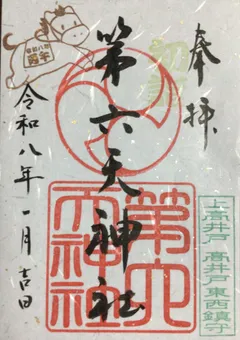 奉拝
初詣
第六天神社
令和八年一月吉日
令和八年
丙午
第六
天神社
上高井戸 高井戸東西鎮守